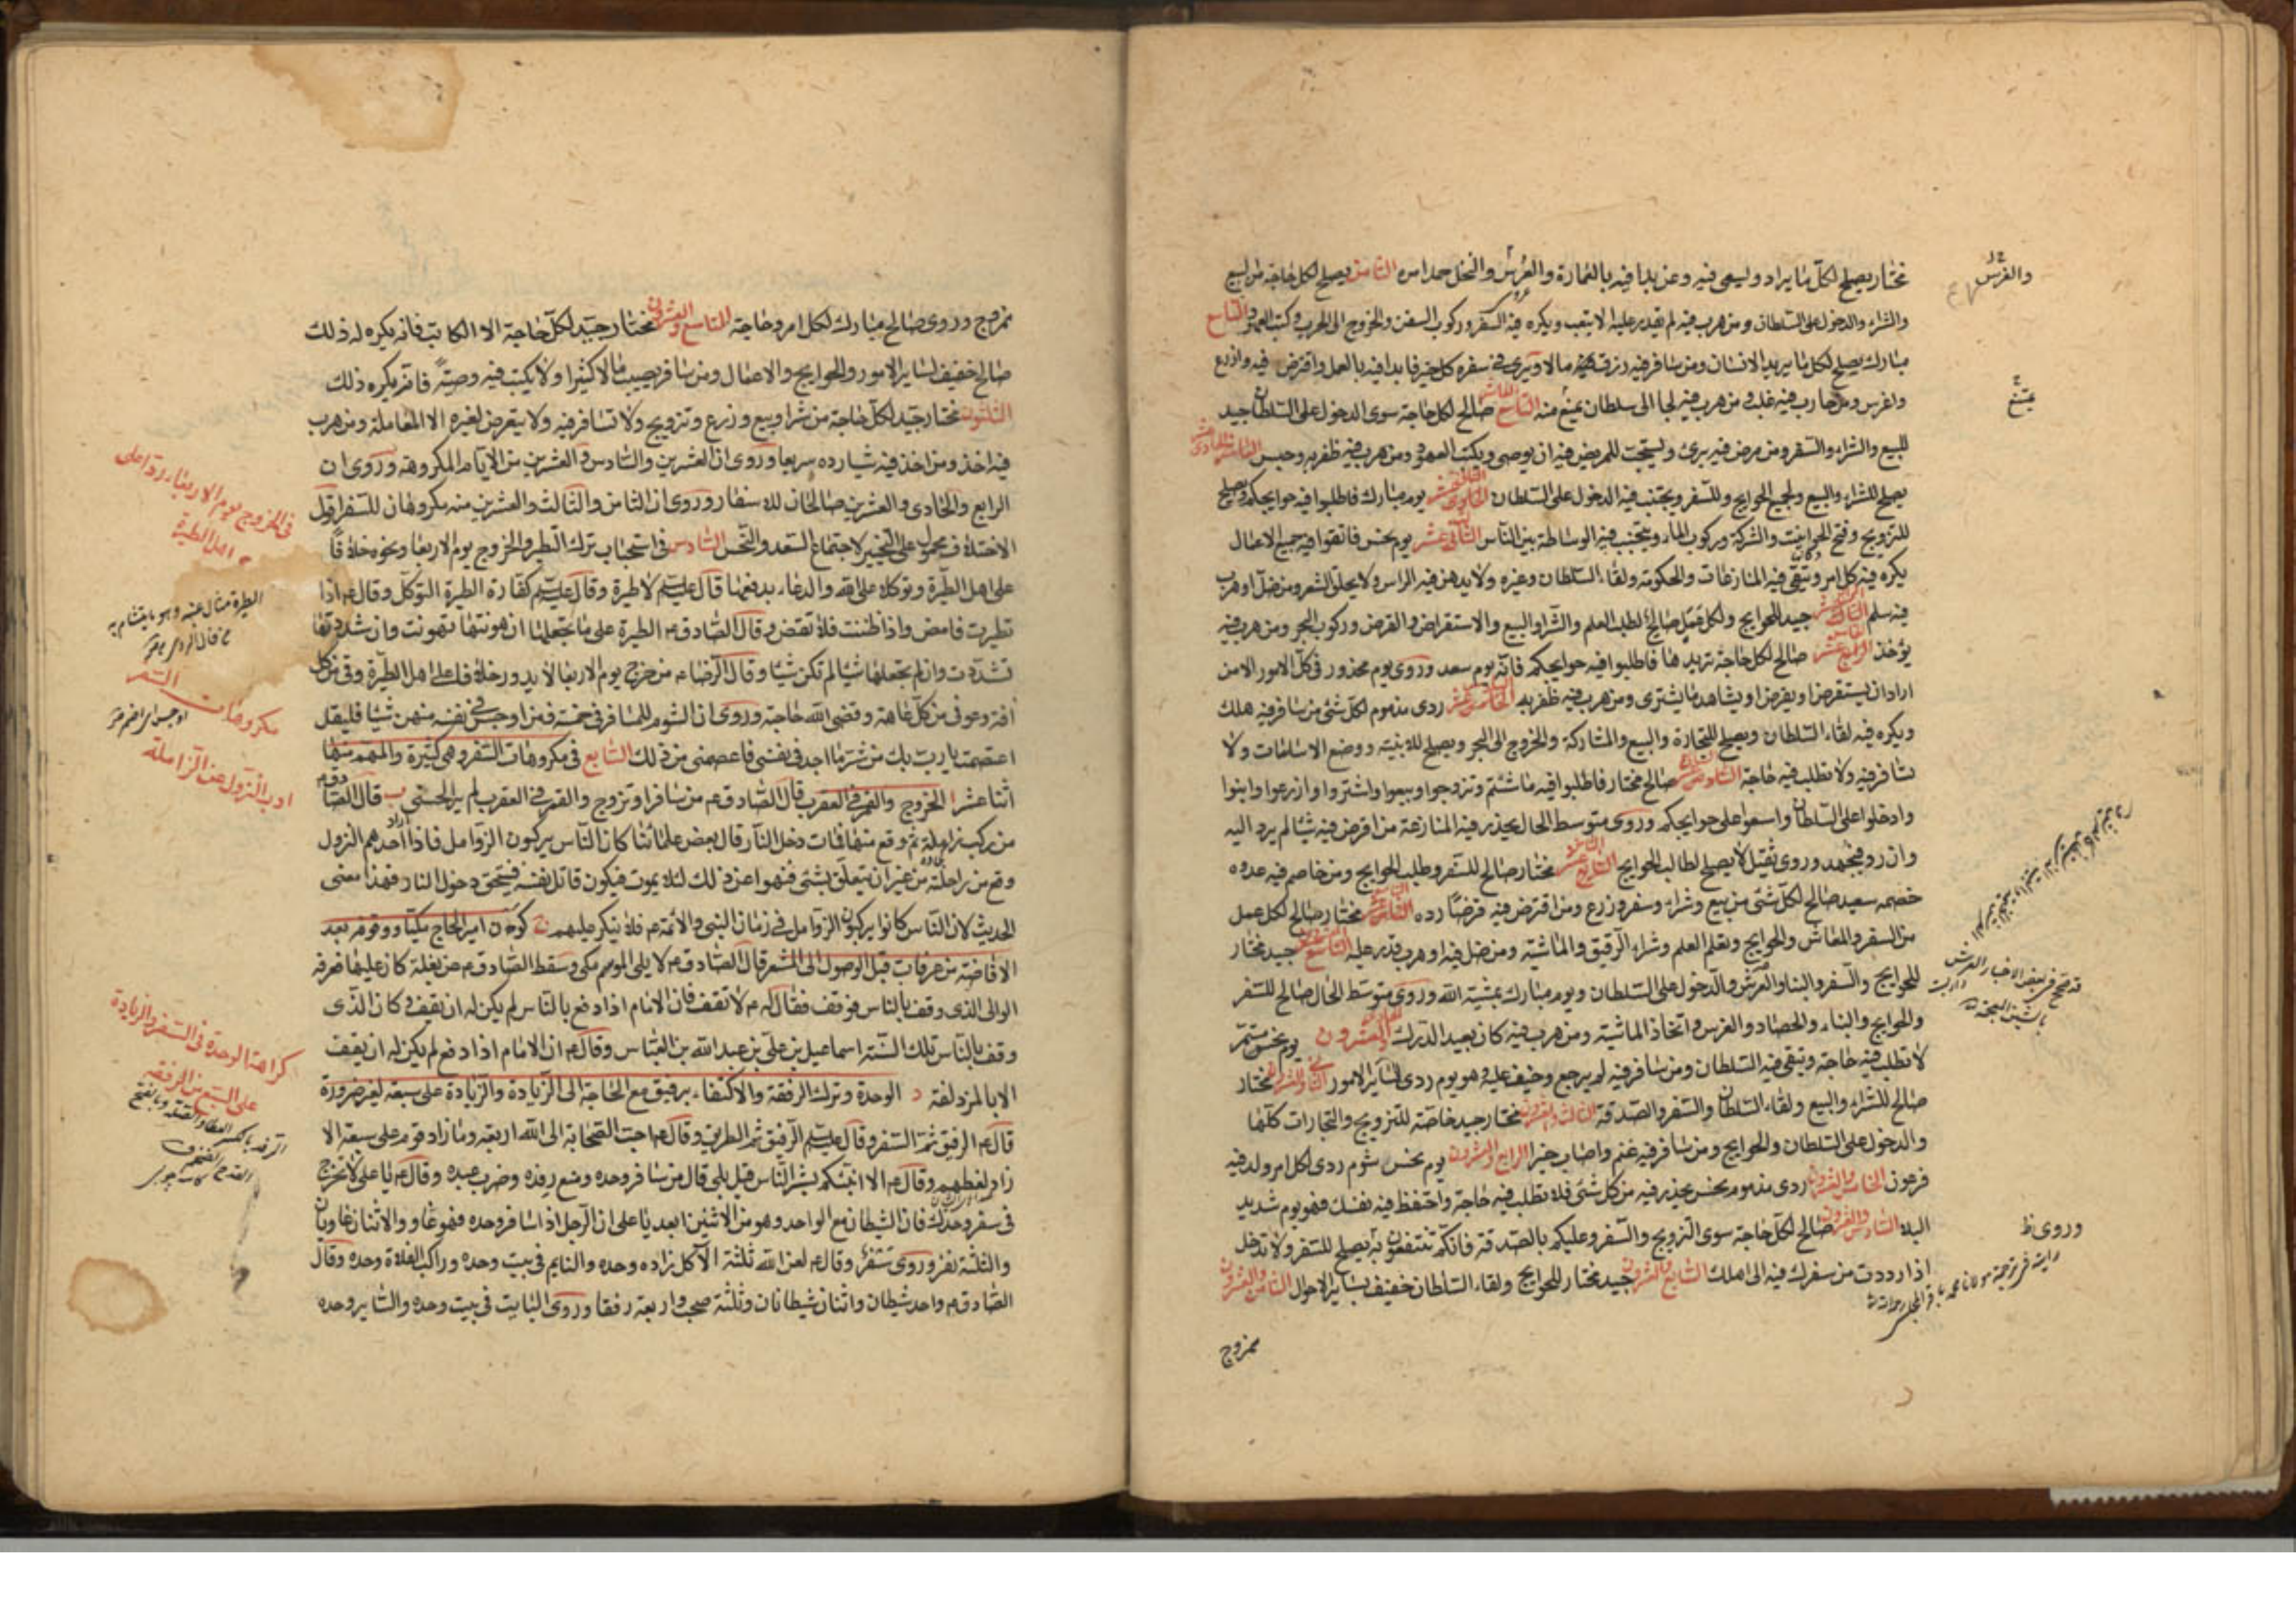 مختار يصلح لكل ما يراد ويسعى فيه ومن بدا فيه بالعمارة والغرس والنخل حمد امره الثامن يصلح لكل حاجة من البيع
والشراء والدخول على السلطان ومن هرب فيه لم يقدر عليه الا بتعب ويكره فيه السفر وركوب السفن والخروج الى الحرب وكتب العهود التاسع
مبارك يصلح لكل ما يريد الانسان ومن سافر فيه رزق مالا ويرى في سفره كل خير فابدا فيه بالعمل واقترض فيه وازرع
واغرس ومن حارب فيه غلب ومن هرب فيه لجا الى سلطان يمنع منه العاشر صالح لكل حاجة سوى الدخول على السلطان جيد
للبيع والشراء والسفر ومن مرض فيه برئ ويستحب للمريض فيه ان يوصى ويكتب العهود ومن هرب فيه ظفر به وحبس الحادى عشر
يصلح للشراء والبيع ولجميع الحوايج وللسفر ويجتنب فيه الدخول على السلطان الثانى عشر يوم مبارك فاطلبوا فيه حوايجكم ويصلح
للتزويج وفتح الحوانيت والشركة وركوب الماء ويجتنب فيه الوساطة بين الناس الثالث عشر يوم نحس فاتقوا فيه جميع الاعمال
يكره فيه كل امر ويتقى فيه المنازعات والحكومة ولقاء السلطان وغيره ولا يدهن فيه الراس ولا يحلق الشعر ومن ضل او هرب
فيه سلم الرابع عشر جيد للحوايج ولكل عمل صالح لطلب العلم والشراء والبيع والاستقراض والقرض وركوب البحر ومن هرب فيه
يؤخذ الخامس عشر صالح لكل حاجة تريدها فاطلبوا فيه حوايجكم فانه يوم سعد وروى يوم محذور في كل الامور الا من
اراد ان يستقرض او يقرض او يشاهد ما يشترى ومن هرب فيه ظفر به السادس عشر ردى مذموم لكل شئ من سافر فيه هلك
ويكره فيه لقاء السلطان ويصلح للتجارة والبيع والمشاركة والخروج الى البحر ويصلح للابنية ووضع الاساسات ولا
تسافر فيه ولا تطلب فيه حاجة السابع عشر صالح مختار فاطلبوا فيه ما شئتم وتزوجوا وبيعوا واشتروا وازرعوا وابنوا
وادخلوا على السلطان واسعوا على حوايجكم وروى متوسط الحال يحذر فيه المنازعة من اقرض فيه شيئا لم يرد اليه
وان رد فبجهد وروى ثقيل لا يصلح لطالب الحوايج الثامن عشر مختار صالح للسفر وطلب الحوايج ومن خاصم فيه عدوه
خصمه سعيد صالح لكل شئ من بيع وشراء وسفر وزرع ومن اقترض فيه قرضا رده التاسع عشر مختار صالح لكل عمل
من السفر والمعاش والحوايج وتعلم العلم وشراء الرقيق والماشية ومن ضل فيه او هرب قدر عليه العشرون جيد مختار
للحوايج والسفر والبناء والغرس والدخول على السلطان ويوم مبارك بمشية الله وروى متوسط الحال صالح للسفر
والحوايج والبناء والحصاد والغرس واتخاذ الماشية ومن هرب فيه كان بعيد الدرك الحادى والعشرون يوم نحس مستمر
لا تطلب فيه حاجة ويتقى فيه السلطان ومن سافر فيه لم يرجع وخيف عليه وهو يوم ردى لساير الامور الثانى والعشرون مختار
صالح للشراء والبيع ولقاء السلطان والسفر والصدقة الثالث والعشرون مختار جيد خاصة للتزويج والتجارات كلها
والدخول على السلطان والحوايج ومن سافر فيه غنم واصاب خيرا الرابع والعشرون يوم نحس شوم ردى لكل امر ولد فيه
فرعون الخامس والعشرون ردى مذموم نحس يحذر فيه من كل شئ فلا تطلب فيه حاجة واحتفظ فيه نفسك فهو يوم شديد
البلاء السادس والعشرون صالح لكل حاجة سوى التزويج والسفر وعليكم بالصدقة فانكم تنتفعون به يصلح للسفر ولا تدخل
اذا رددت من سفرك فيه الى اهلك السابع والعشرون جيد مختار للحوايج ولقاء السلطان خفيف بساير الاحوال الثامن والعشرون
ممزوج
والغرس
يمتنع
وروى ظ
ممزوج وروى صالح مبارك لكل امر وحاجة التاسع والعشرون مختار جيد لكل حاجة الا الكاتب فانه يكره له ذلك
صالح خفيف لساير الامور والحوايج والاعمال ومن سافر يصيب مالا كثيرا ولا يكتب فيه وصية فانه يكره ذلك
الثلثون مختار جيد لكل حاجة من شراء وبيع وزرع وتزويج ولا تسافر فيه ولا يتعرض لغيره الا المعاملة ومن هرب
فيه اخذ ومن اخذ فيه شيئا رده سريعا وروى ان العشرين والسادس والعشرين من الايام المكروهة وروى ان
الرابع والحادى والعشرين صالحان للاسفار وروى ان الثامن والثالث والعشرين منه مكروهان للسفر اقول
الاختلاف محمول على التخيير لاجتماع السعد والنحس السادس في استحباب ترك التطير والخروج يوم الاربعا ونحوه خلافا
على اهل الطيرة وتوكلا على الله والدعاء بدفعها قال عليه السلم لا طيرة وقال عليه السلم كفارة الطيرة التوكل وقال ع اذا
تطيرت فامض واذا ظننت فلا تقض وقال الصادق ع الطيرة على ما تجعلها ان هونتها تهونت وان شددتها
تشددت وان لم تجعلها شيئا لم تكن شيئا وقال الرضا ع من خرج يوم الاربعا لا يدور خلافا على اهل الطيرة وقى من كل
افة وعوفى من كل عاهة وقضى الله حاجته وروى ان الشوم للمسافر في خمسة فمن اوجس في نفسه منهن شيئا فليقل
اعتصمت يا رب بك من شر ما اجد في نفسى فاعصمنى من ذلك السابع في مكروهات السفر وهى كثيرة والمهم منها
اثنا عشر ا الخروج والقمر في العقرب قال الصادق ع من سافر او تزوج والقمر في العقرب لم ير الحسنى ب قال الصادق ع
من ركب زاملة ثم وقع منها فمات دخل النار قال بعض علمائنا كان الناس يركبون الزوامل فاذا اراد احدهم النزول
وقع من راحلته من غير ان يتعلق بشئ فنهوا عن ذلك لئلا يموت فيكون قاتل نفسه فيستحق دخول النار فهذا معنى
الحديث لان الناس كانوا يركبون الزوامل في زمان النبى والائمة ع فلا ينكر عليهم ج كون امير الحاج مكيا ووقوفه بعد
الافاضة من عرفات قبل الوصول الى المشعر قال الصادق ع لا يلى الموسم مكى وسقط الصادق ع عن بغلة كان عليها فعرفه
الوالى الذى وقف بالناس فوقف فقال له ع لا تقف فان الامام اذا دفع بالناس لم يكن له ان يقف وكان الذى
وقف بالناس تلك السنة اسماعيل بن على بن عبد الله بن العباس وقال ع ان الامام اذا دفع لم يكن له ان يقف
الا بالمزدلفة د الوحدة وترك الرفقة والاكتفاء برفيق مع الحاجة الى الزيادة والزيادة على سبعة لغير ضرورة
قال ع الرفيق ثم السفر وقال عليه السلم الرفيق ثم الطريق وقال ع احب الصحابة الى الله اربعة وما زاد قوم على سبعة الا
زاد لغطهم وقال ع الا انبئكم بشر الناس قيل بلى قال من سافر وحده ومنع رفده وضرب عبده وقال ع يا على لا تخرج
في سفر وحدك فان الشيطان مع الواحد وهو من الاثنين ابعد يا على ان الرجل اذا سافر وحده فهو غاو والاثنان غاويان
والثلثة نفر وروى سفر وقال ع لعن الله ثلثة الآكل زاده وحده والنايم في بيت وحده وراكب الفلاة وحده وقال
الصادق ع واحد شيطان واثنان شيطانان وثلثة صحب واربعة رفقا وروى البايت في بيت وحده والساير وحده
في الخروج يوم الاربعاء ردا على
اهل الطيرة
مكروهات السفر
ادب النزول عن الزاملة
كراهة الوحدة في السفر والزيادة
على السبع من الرفقة